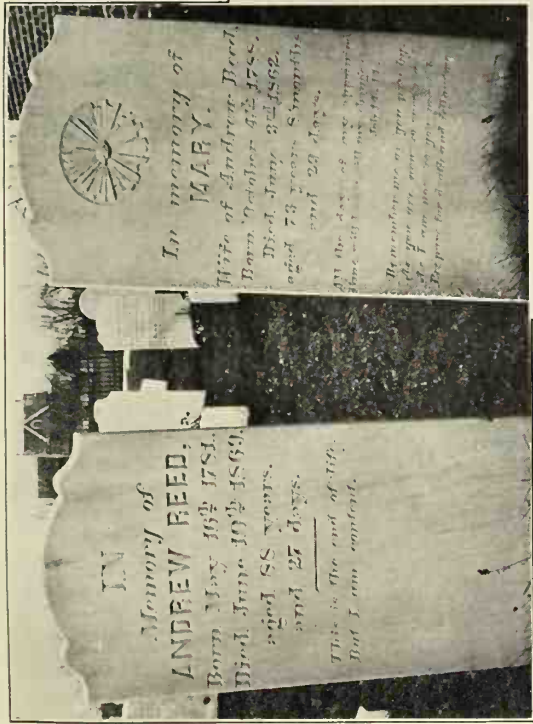 IN
Memory of
ANDREW REED,
Born May 16th 1781.
Died June 10th 1869.
aged 88 years.
and 27 days.
This is the end of life,
But I am content.
In memory of
MARY.
Wife of Andrew Reed,
Born October 4th 1788.
Died June 2nd 1862.
aged 73 years 8 months
and 28 days.
All the days of my appointed
time will I
Job 14.14.
Remember me as you pass by,
As you are now so once was I
As I am now so you must
Prepare for death and follow me